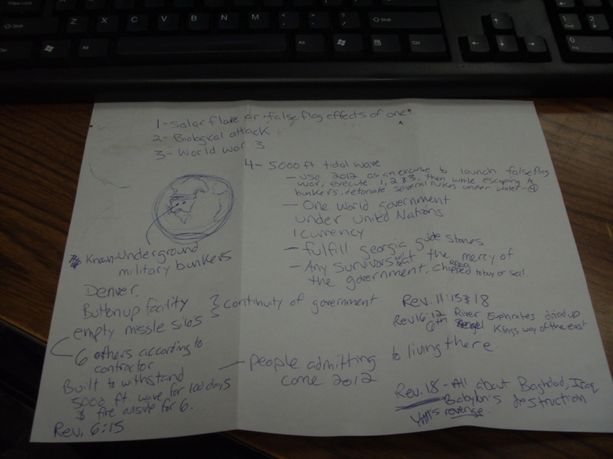 1- Solar flare or false flag effects of one
2- Biological attack
3- World War 3
4- 5000 ft tidal wave
- use 2012 as an excuse to launch false flag
war, execute 1, 2 & 3, then while escaping to
bunkers, detonate several nukes under water - 4
- One World government
under United Nations
1 currency
- fulfill georgia guide stones
- Any survivors at the mercy of
the government, chipped to buy or sell
Known Underground
military bunkers
Denver
Button up facility
empty missle silos
continuity of government
6 others according to
contractor
Built to withstand
5000 ft wave for 100 days
& fire outside for 6.
Rev. 6:15
- people admitting to living there
come 2012
Rev. 11:15 & 18
Rev 16:12 River Euphrates dried up
6th Kings way of the east
Rev. 18 - All about Baghdad, Iraq
Babylon's destruction
revenge.